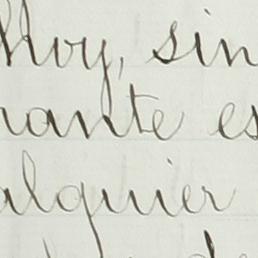 Hoy, sin
uante es
alquier